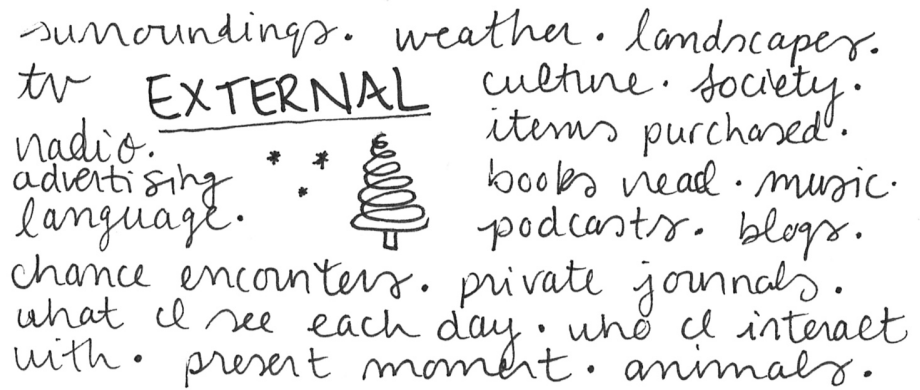 surroundings. weather. landscapes.
tv EXTERNAL culture. society.
items purchased.
radio.
advertising books read. music.
language. podcasts. blogs.
chance encounters. private journals.
what I see each day. who I interact
with. present moment. animals.